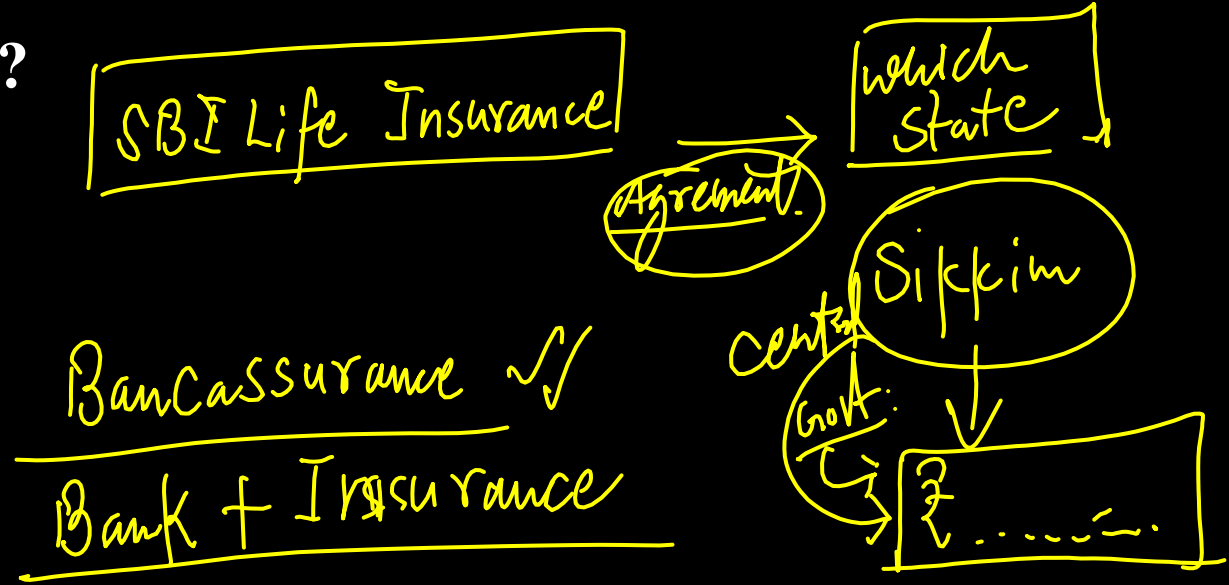 ?
SBI Life Insurance
which
state
Agreement.
Sikkim
Central
Govt.
Bancassurance
Bank + Insurance
₹ ........